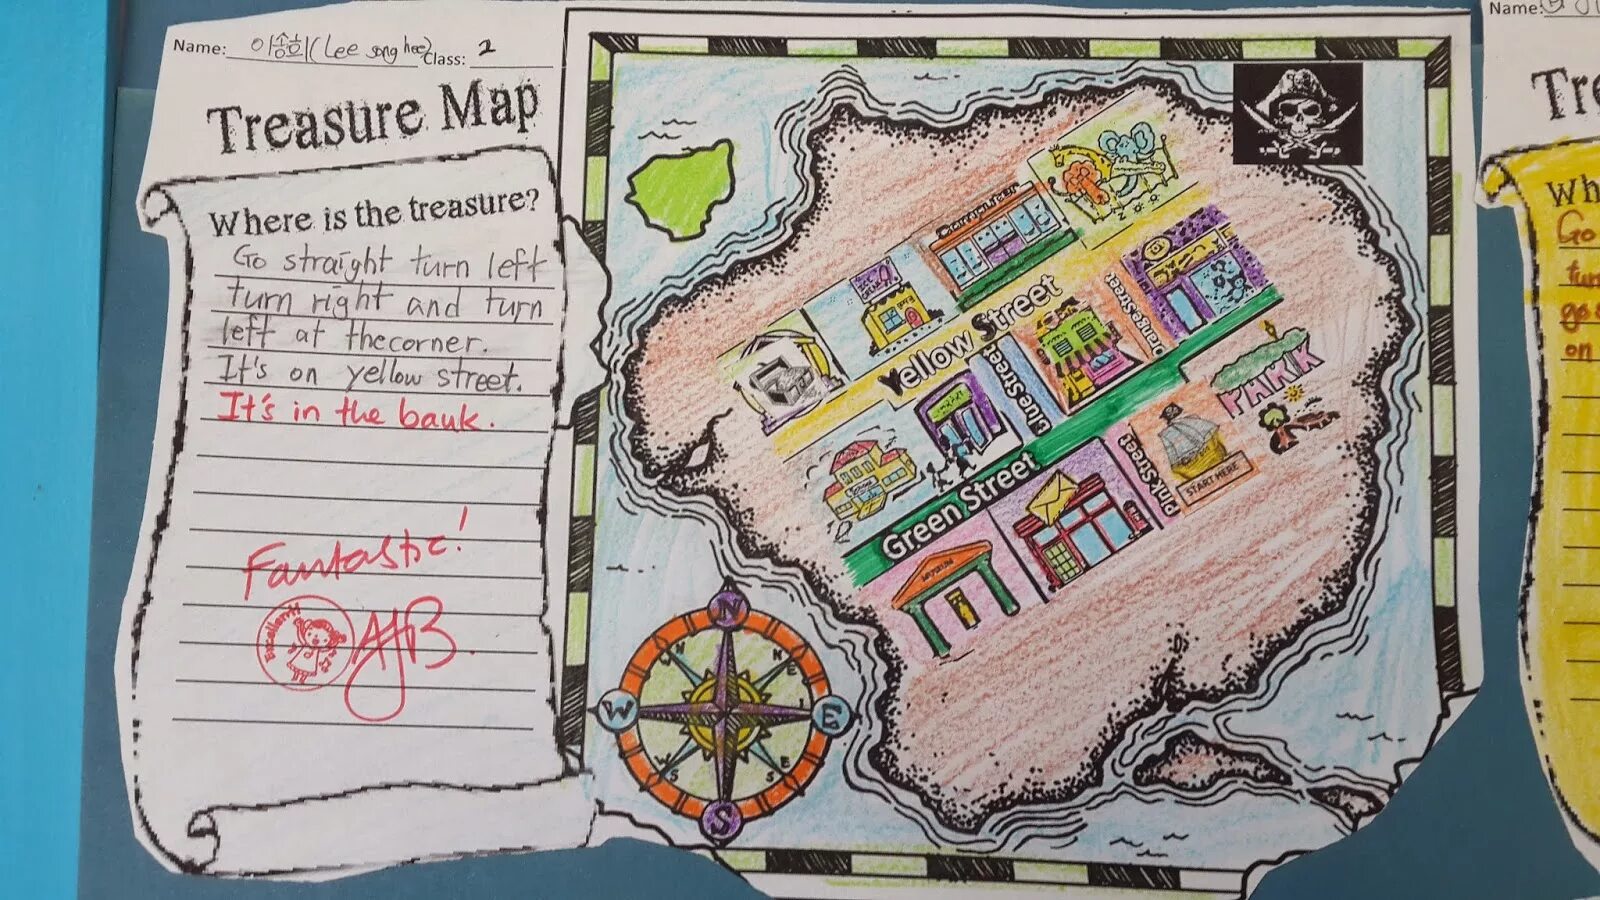 Name: 이송희(Lee song hee) Class: 2
Treasure Map
Where is the treasure?
Go straight turn left
turn right and turn
left at the corner.
It's on yellow street.
It's in the bank.
Fantastic!
Excellent!!
AJB
ZOO
Yellow Street
Orange Street
Blue Street
PARK
Green Street
Pink Street
START HERE
MUSEUM
N
NE
E
SE
S
W
Name:
Tre
Wh
Go
tur
go s
on